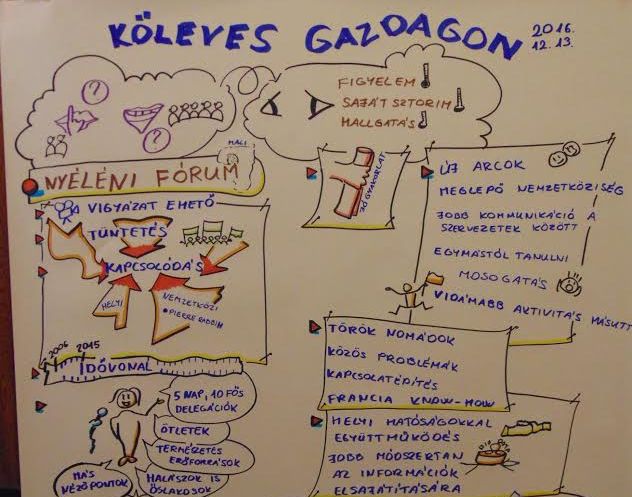 KŐLEVES GAZDAGON
2016.
12.13.
?
?
FIGYELEM
SAJÁT SZTORIM
HALLGATÁS
MALI
NYÉLÉNI FÓRUM
VIGYÁZAT EHETŐ
TÜNTETÉS
KAPCSOLÓDÁS
HELYI
NEMZETKÖZI
• PIERRE RABBIH
2006 2015
IDŐVONAL
5 NAP, 10 FŐS
DELEGÁCIÓK
ÖTLETEK
TERMÉSZETES
ERŐFORRÁSOK
MÁS
NÉZŐPONTOK
HALÁSZOK IS
ŐSLAKOSOK
JÓ GYAKORLAT
ÚJ ARCOK
MEGLEPŐ NEMZETKÖZISÉG
JOBB KOMMUNIKÁCIÓ A
SZERVEZETEK KÖZÖTT
EGYMÁSTÓL TANULNI
MOSOGATÁS
VIDÁMABB AKTIVITÁS MÁSUTT
TÖRÖK NOMÁDOK
KÖZÖS PROBLÉMÁK
KAPCSOLATÉPÍTÉS
FRANCIA KNOW-HOW
HELYI HATÓSÁGOKKAL
EGYÜTTMŰKÖDÉS
JOBB MÓDSZERTAN
AZ INFORMÁCIÓK
ELSAJÁTÍTÁSÁRA